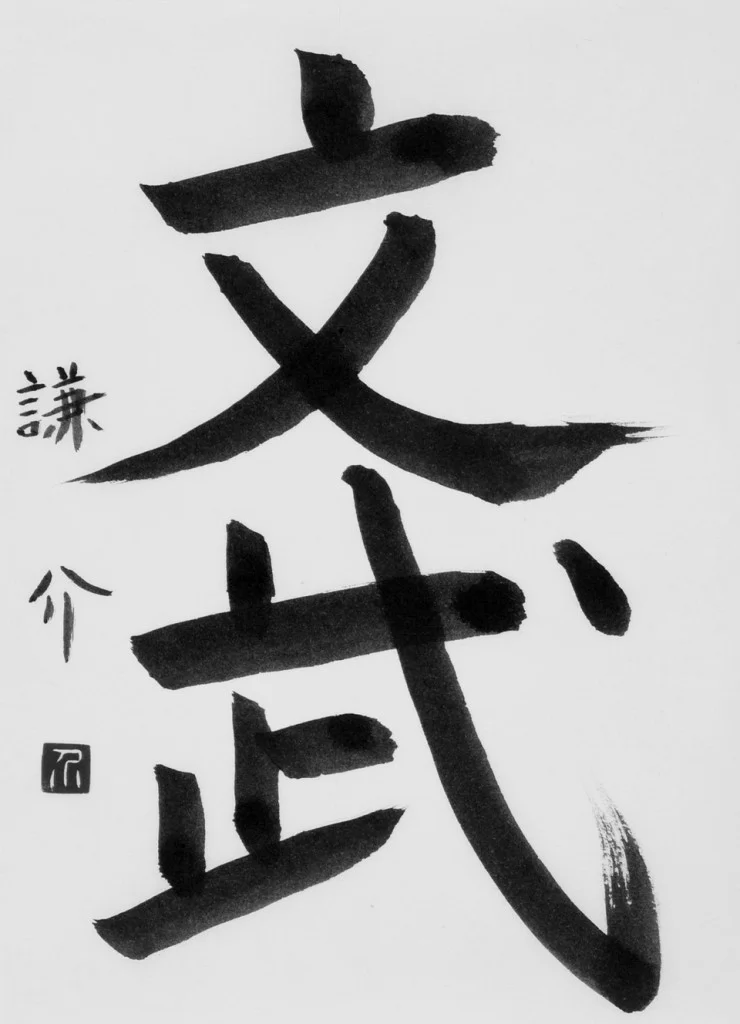 文武
謙介